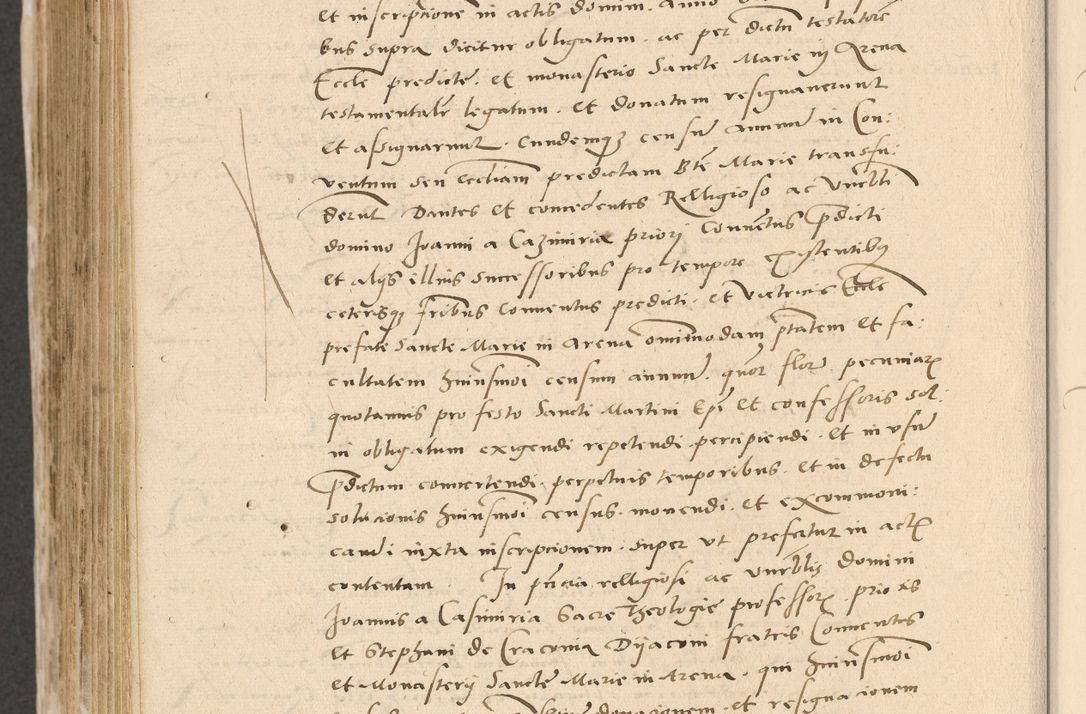 et inscriptione in actis domini. Anno
bus supra dicitur obligatum. ac per dictū testatorē
Eccle predicte. et monasterio Sancte Marie in Arena
testamentalr̄ legatum. et donatum resignauerunt
et assignarunt. Eundemq3 censū annuū in Con:
uentum seu ecclīam predictam Btē Marie transfu:
derūt Dantes et concedentes Religioso ac Vnrbli
domino Joanni a Cazimiria priori Conuētus p̄dicti
et alijs illius successoribus pro tempore existentibus
ceterisq3 fr̄ibus Conuentus predicti. et victricis Eccle
prefate Sancte Marie in Arena omnimodam p̄tatem et fa:
cultatem huiusmōi censum annuū. quor̄ flor̄. pecuniar̄
quotannis pro festo Sancti Martini Ep̄i et confessoris sol:
ui obligatum exigendi repetendi percipiendi. et in vsū
p̄dictum conuertendi. perpetuis temporibus. et in defectu
solucionis huiusmōi census. monendi. et excommoni:
candi iuxta inscripcionem. super vt prefertur in act̄
contentam. In p̄ncia relligiosi ac Vnrblis domini
Joannis a Casimiria Sacre Theologie professor̄. prioris
et Stephani de Cracouia Dyaconi fratris Conuentus
et Monasterij Sancte Marie in Arena. qui huiusmōi
donacionem. et resignacionem